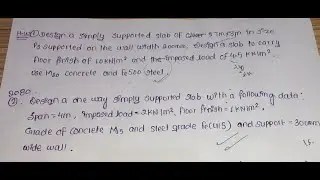 H.W ① Design a simply supported slab of clear 3.7m×9m in size
Is supported on the wall width 300mm. Design a slab to carry
floor finish of 1.0KN/m² and the imposed load of 4.5 KN/m².
Use M20 concrete and Fe500 steel.
2080.
②. Design a one way simply supported slab with a following data:
Span = 4m, imposed load = 2KN/m², Floor finish = 1KN/m².
Grade of concrete M15 and steel grade Fe(415) and support = 300mm
wide wall.